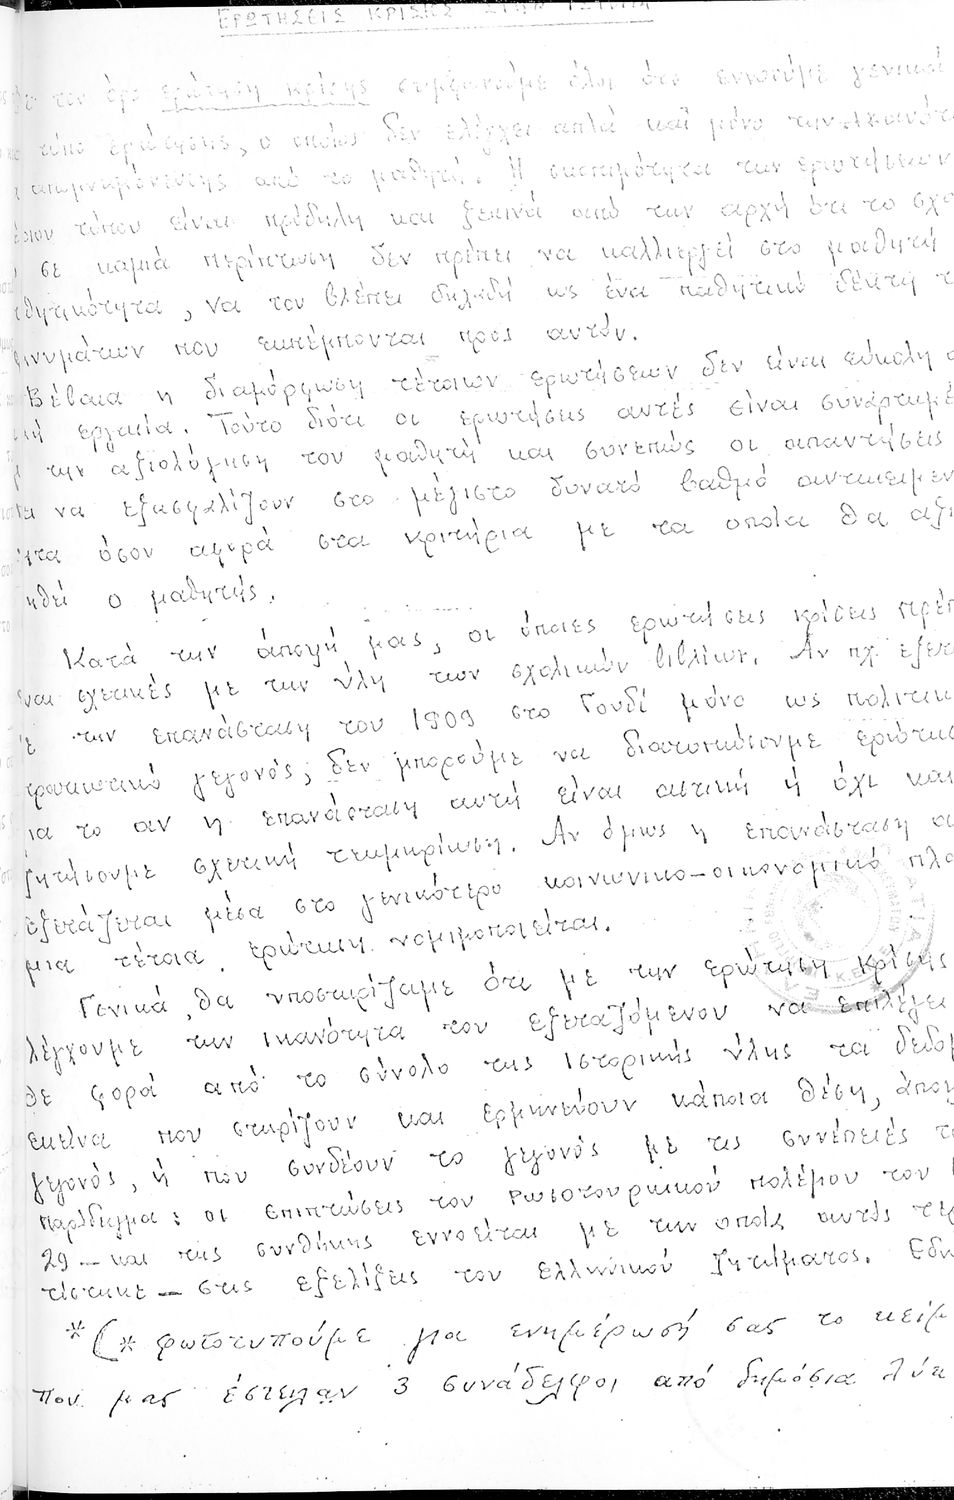 ΕΡΩΤΗΣΕΙΣ ΚΡΙΣΗΣ ΣΤΗΝ ΙΣΤΟΡΙΑ
τον όρο ερώτηση κρίσης συμφωνούμε όλοι ότι εννοούμε γενικά
τύπο ερώτησης, ο οποίος δεν ελέγχει απλά και μόνο την ικανότη
απομνημόνευσης από το μαθητή. Η σκοπιμότητα των ερωτήσεων
τύπου είναι πρόδηλη και ξεκινά από την αρχή ότι το σχο
σε καμιά περίπτωση δεν πρέπει να καλλιεργεί στο μαθητή
θητικότητα, να τον βλέπει δηλαδή ως ένα παθητικό δέκτη τ
μηνυμάτων που εκπέμπονται προς αυτόν.
Βέβαια η διαμόρφωση τέτοιων ερωτήσεων δεν είναι εύκολη
εργασία. Τούτο διότι οι ερωτήσεις αυτές είναι συνάρτημέ
την αξιολόγηση του μαθητή και συνεπώς οι απαντήσεις
να εξασφαλίζουν στο μέγιστο δυνατό βαθμό αντικειμεν
ητα όσον αφορά στα κριτήρια με τα οποία θα αξι
ηθεί ο μαθητής.
Κατά την άποψή μας, οι όποιες ερωτήσεις κρίσεις πρέπ
ναι σχετικές με την ύλη των σχολικών βιβλίων. Αν πχ. εξετα
ε την επανάσταση του 1909 στο Γουδί μόνο ως πολιτικ
τρατιωτικό γεγονός, δεν μπορούμε να διατυπώσουμε ερώτησ
ια το αν η επανάσταση αυτή είναι αστική ή όχι και
ζητήσουμε σχετική τεκμηρίωση. Αν όμως η επανάσταση α
εξετάζεται μέσα στο γενικότερο κοινωνικο-οικονομικό πλα
μια τέτοια ερώτηση νομιμοποιείται.
Γενικά, θα υποστηρίζαμε ότι με την ερώτηση κρίσης
λέγχουμε την ικανότητα του εξεταζόμενου να επιλέγει
θε φορά από το σύνολο της ιστορικής ύλης τα δεδομ
εκείνα που στηρίζουν και ερμηνεύουν κάποια θέση, άποψ
γεγονός, ή που συνδέουν το γεγονός με τις συνέπειές τ
παράδειγμα: οι επιπτώσεις του Ρωσοτουρκικού πολέμου του
29 – και της συνθήκης εννοείται με την οποία αυτός τερ
τίστηκε – στις εξελίξεις του Ελληνικού Ζητήματος. Εδώ
*(* φωτοτυπούμε για ενημέρωσή σας το κείμ
που μας έστειλαν 3 συνάδελφοι από δημόσια λύκ